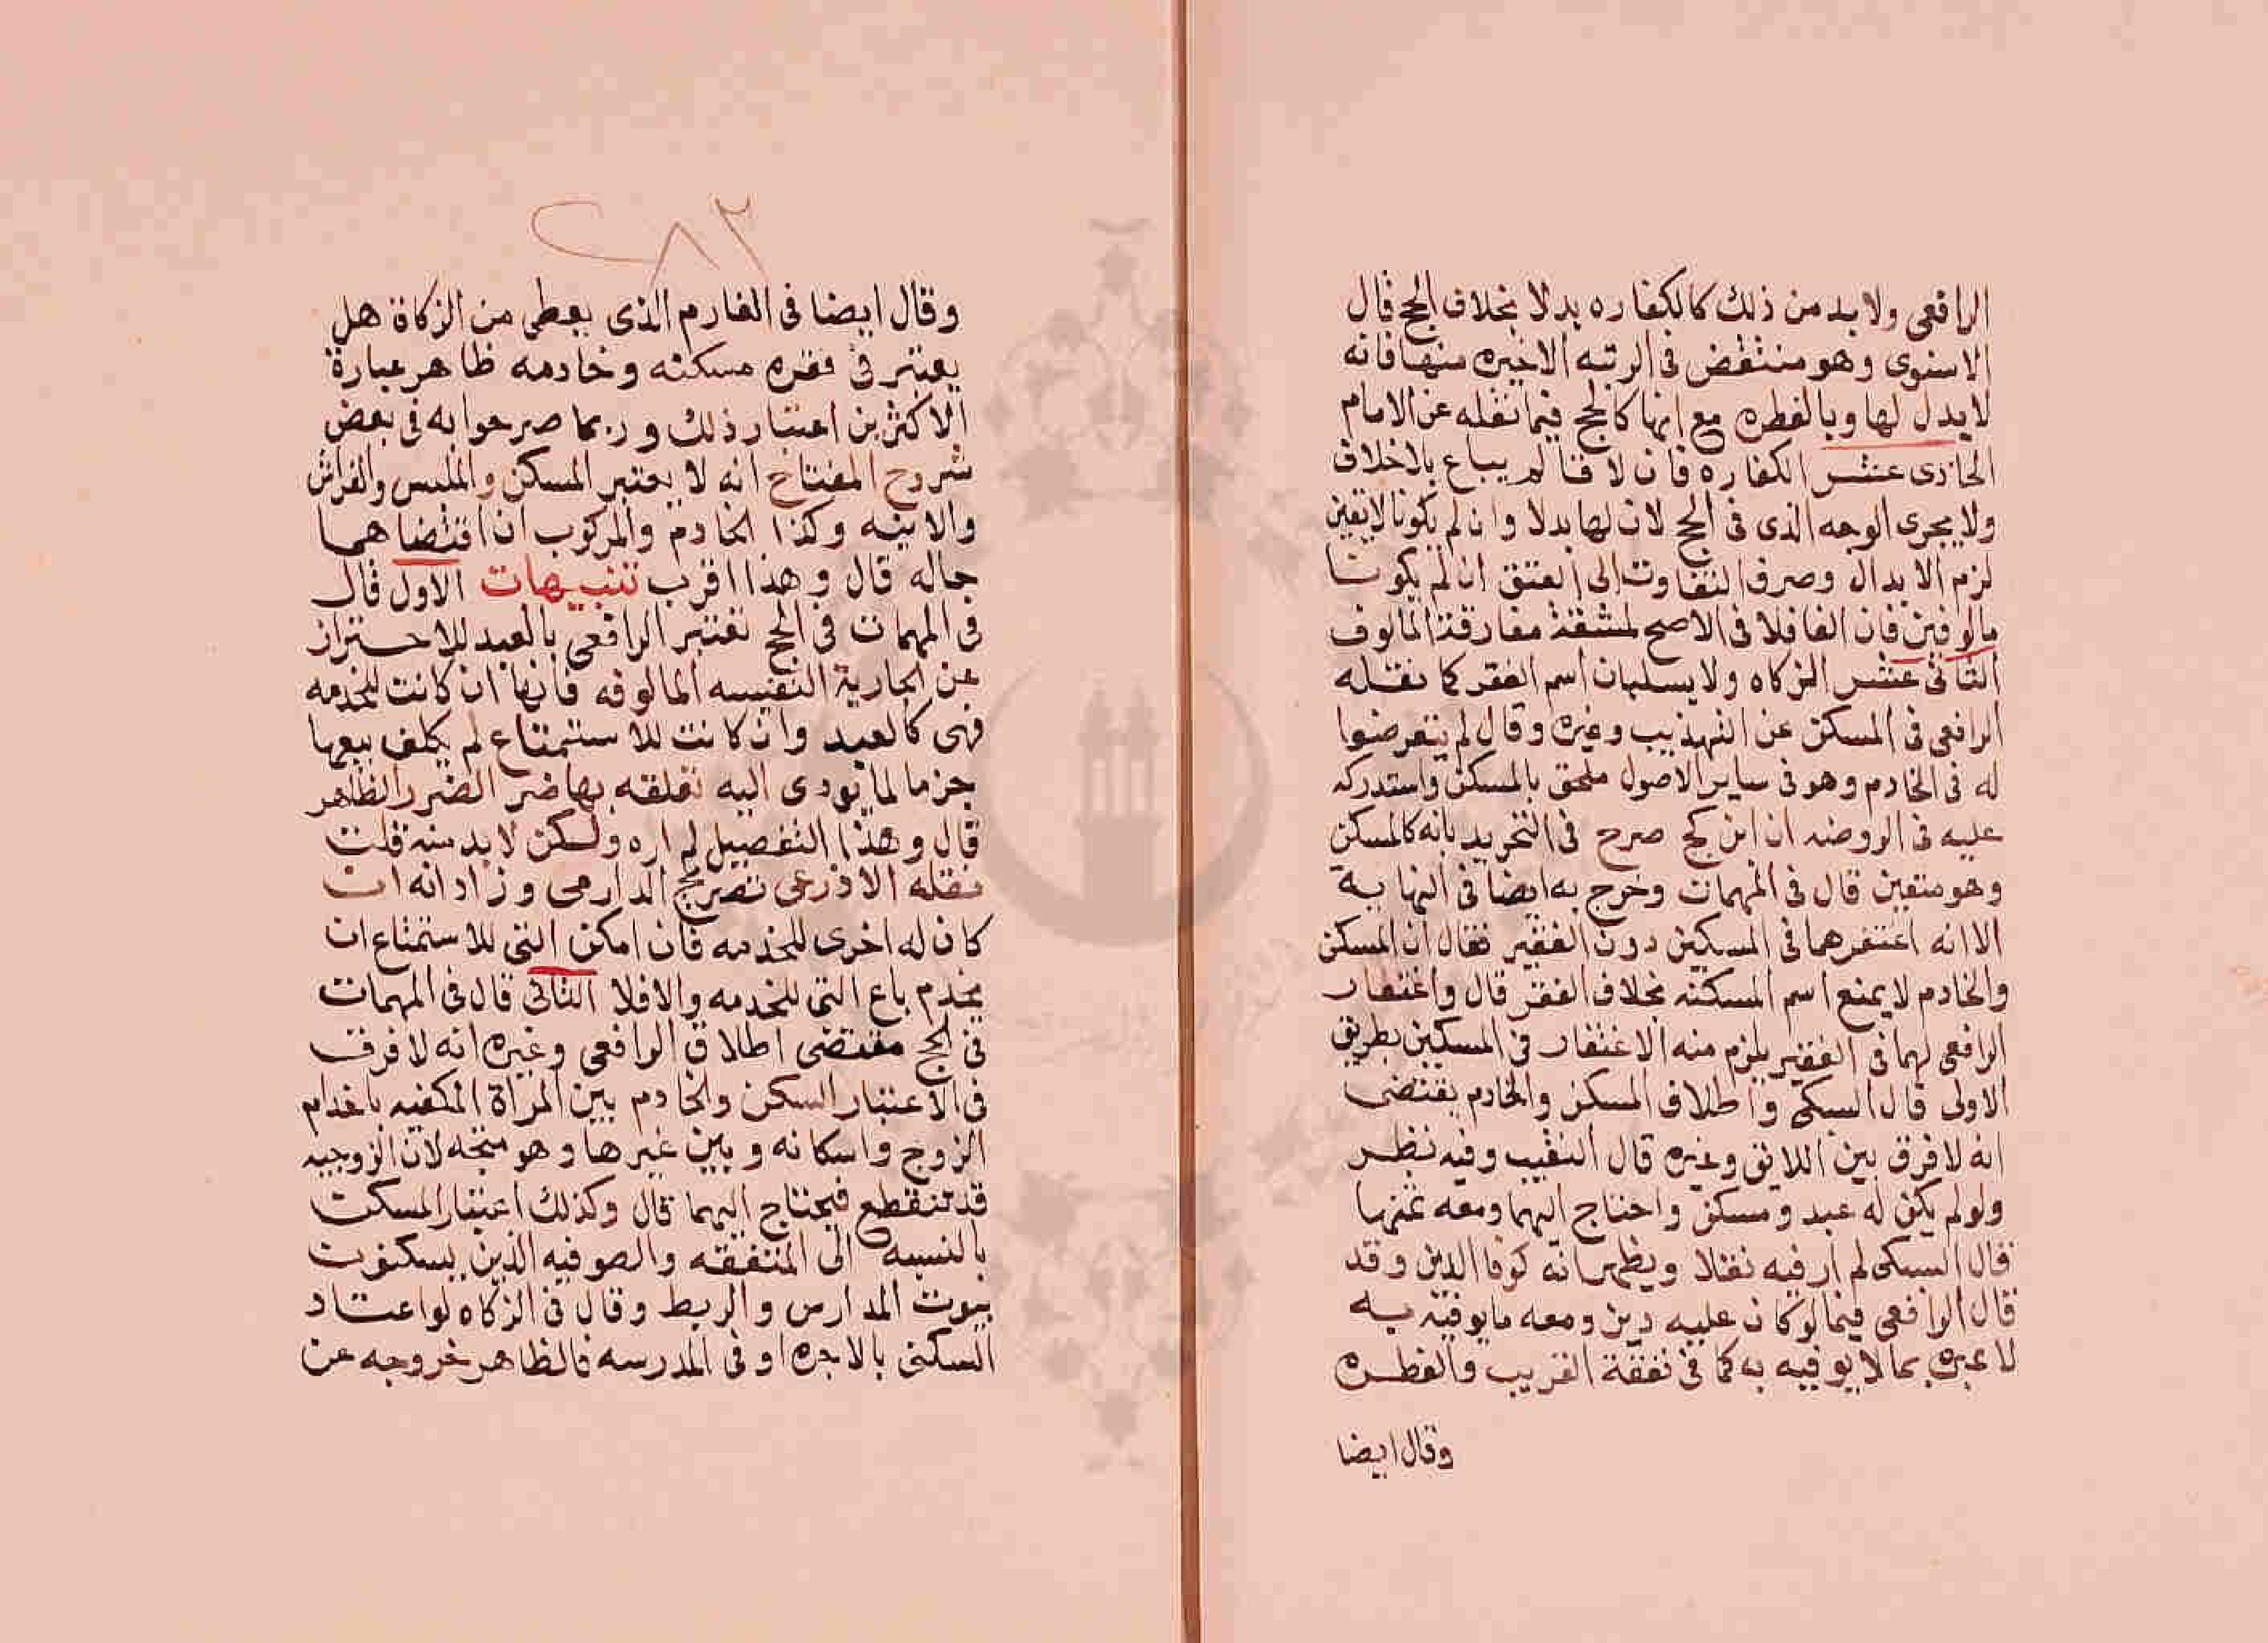 الرافعى ولا بد من ذلك كالكفاره بدلا بخلاف الحج قال
الاسنوى وهو منتقض فى الرتبه الاخيره منها فانه
لا بدل لها وبالفطره مع انها كالحج فيما نقله عن الامام
الحادى عشر الكفاره فان لاقا لم يباع بلاخلاف
ولا يجرى الوجه الذى فى الحج لان لها بدلا وان لم يكونا لايقين
لزم الابدال وصرف التفاوت الى العتق ان لم يكونا
مالوفين فان الفا فلا فى الاصح لمشقة مفارقة المالوف
الثانى عشر الزكاه ولا يسلبان اسم الفقر كما نقله
الرافعى فى المسكن عن التهذيب وغيره وقال لم يتعرضوا
له فى الخادم وهو فى ساير الاصول ملحق بالمسكن واستدركه
عليه فى الروضه ان ابن كج صرح فى التجريد بانه كالمسكن
وهو متعين قال فى المهمات وخرج به ايضا فى النهاية
الا انه اغتفرهما فى المسكين دون الفقير فقال ان المسكن
والخادم لا يمنع اسم المسكنه بخلاف الفقر قال واغتفار
الرافعى لهما فى الفقير يلزم منه الاغتفار فى المسكين بطريق
الاولى قال السبكى واطلاق المسكن والخادم يقتضى
انه لا فرق بين اللايق وغيره قال النقيب وفيه نظر
ولو لم يكن له عبد ومسكن واحتاج اليهما ومعه ثمنهما
قال السبكى لم ار فيه نقلا ويظهر انه كوفا الدين وقد
قال الرافعى فيما لو كان عليه دين ومعه ما يوفيه به
لا عبره بما لا يوفيه به كما فى نفقة القريب والفطره
وقال ايضا
٢٨٢
وقال ايضا فى الغارم الذى يعطى من الزكاة هل
يعتبر فى فقره مسكنه وخادمه ظاهر عبارة
الاكثرين اعتبار ذلك وربما صرحوا به فى بعض
شروح المفتاح انه لا يعتبر المسكن والملبس والفراش
والانيه وكذا الخادم والمركوب ان اقتضاهما
حاله قال وهذا اقرب تنبيهات الاول قال
فى المهمات فى الحج تعتبر الرافعى بالعبد للاحتراز
عن الجارية النفيسه المالوفه فانها ان كانت للخدمه
فهى كالعبد وان كانت للاستمتاع لم يكلف بيعها
جزما لما يودى اليه تعلقه بها ضر الضرر الظاهر
قال وهذا التفصيل لم اره ولكن لا بد منه قلت
نقله الاذرعى تصريح الدارمى وزاد انه ان
كان له اخرى للخدمه فان امكن التى للاستمتاع ان
يخدم باع التى للخدمه والا فلا الثانى قال فى المهمات
فى الحج مقتضى اطلاق الرافعى وغيره انه لا فرق
فى الاعتبار السكن والخادم بين المراة المكفيه باخدام
الزوج واسكانه وبين غيرها وهو متجه لان الزوجيه
قد تنقطع فيحتاج اليهما قال وكذلك اعتبار المسكن
بالنسبه الى المتفقه والصوفيه الذين يسكنون
بيوت المدارس والربط وقال فى الزكاه لو اعتاد
السكنى بالاجره او فى المدرسه فالظاهر خروجه عن